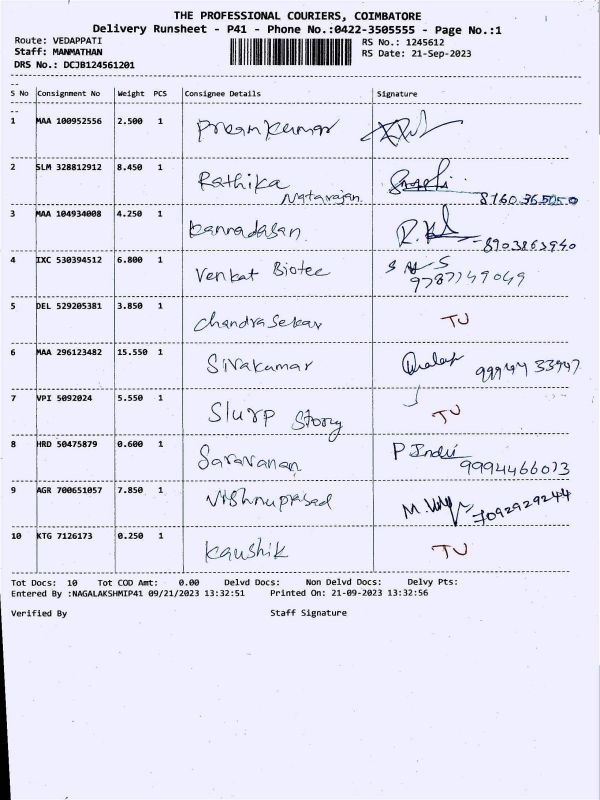 THE PROFESSIONAL COURIERS, COIMBATORE
Delivery Runsheet - P41 - Phone No.:0422-3505555 - Page No.:1
Route: VEDAPPATI
RS No.: 1245612
Staff: MANMATHAN
RS Date: 21-Sep-2023
DRS No.: DCJB124561201
S No Consignment No Weight PCS Consignee Details Signature
1 MAA 100952556 2.500 1 Premkumar
2 SLM 328812912 8.450 1 Rathika Natarajan
8760365050
3 MAA 104934008 4.250 1 Kannadasan R.
8903863940
4 IXC 530394512 6.800 1 Venkat Biotec
9787749049
5 DEL 529205381 3.850 1 Chandrasekar TU
6 MAA 296123482 15.550 1 Sivakumar 99944 33947
7 VPI 5092024 5.550 1 Slurp Story TU
8 HRD 50475879 0.600 1 Saravanan P Indu
9994466073
9 AGR 700651057 7.850 1 Vishnuprasad M. 7092929244
10 KTG 7126173 0.250 1 Kaushik TU
Tot Docs: 10 Tot COD Amt: 0.00 Delvd Docs: Non Delvd Docs: Delvy Pts:
Entered By :NAGALAKSHMIP41 09/21/2023 13:32:51 Printed On: 21-09-2023 13:32:56
Verified By Staff Signature